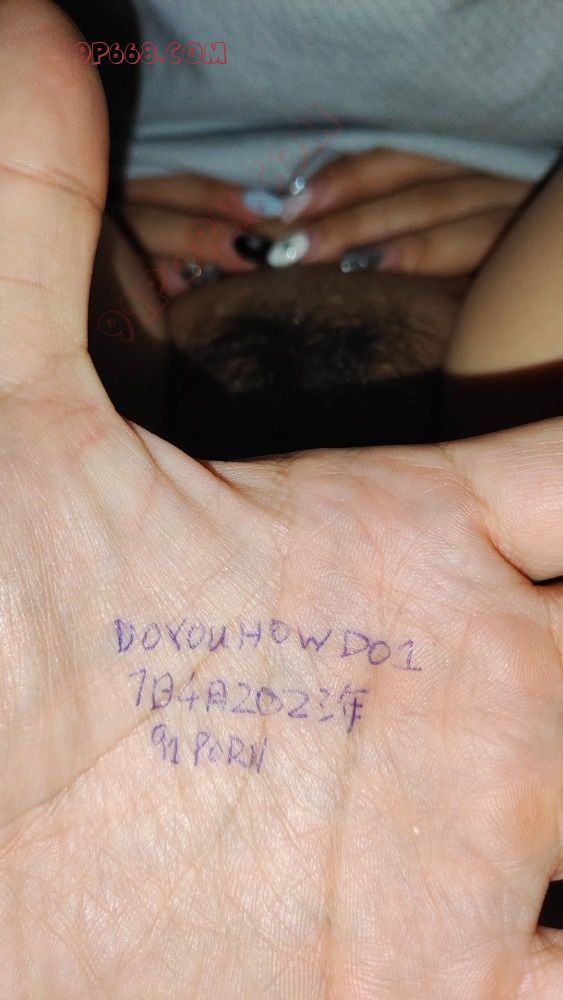 9P668.COM
DOYOUHOWDO1
7日4月2023年
91PORN